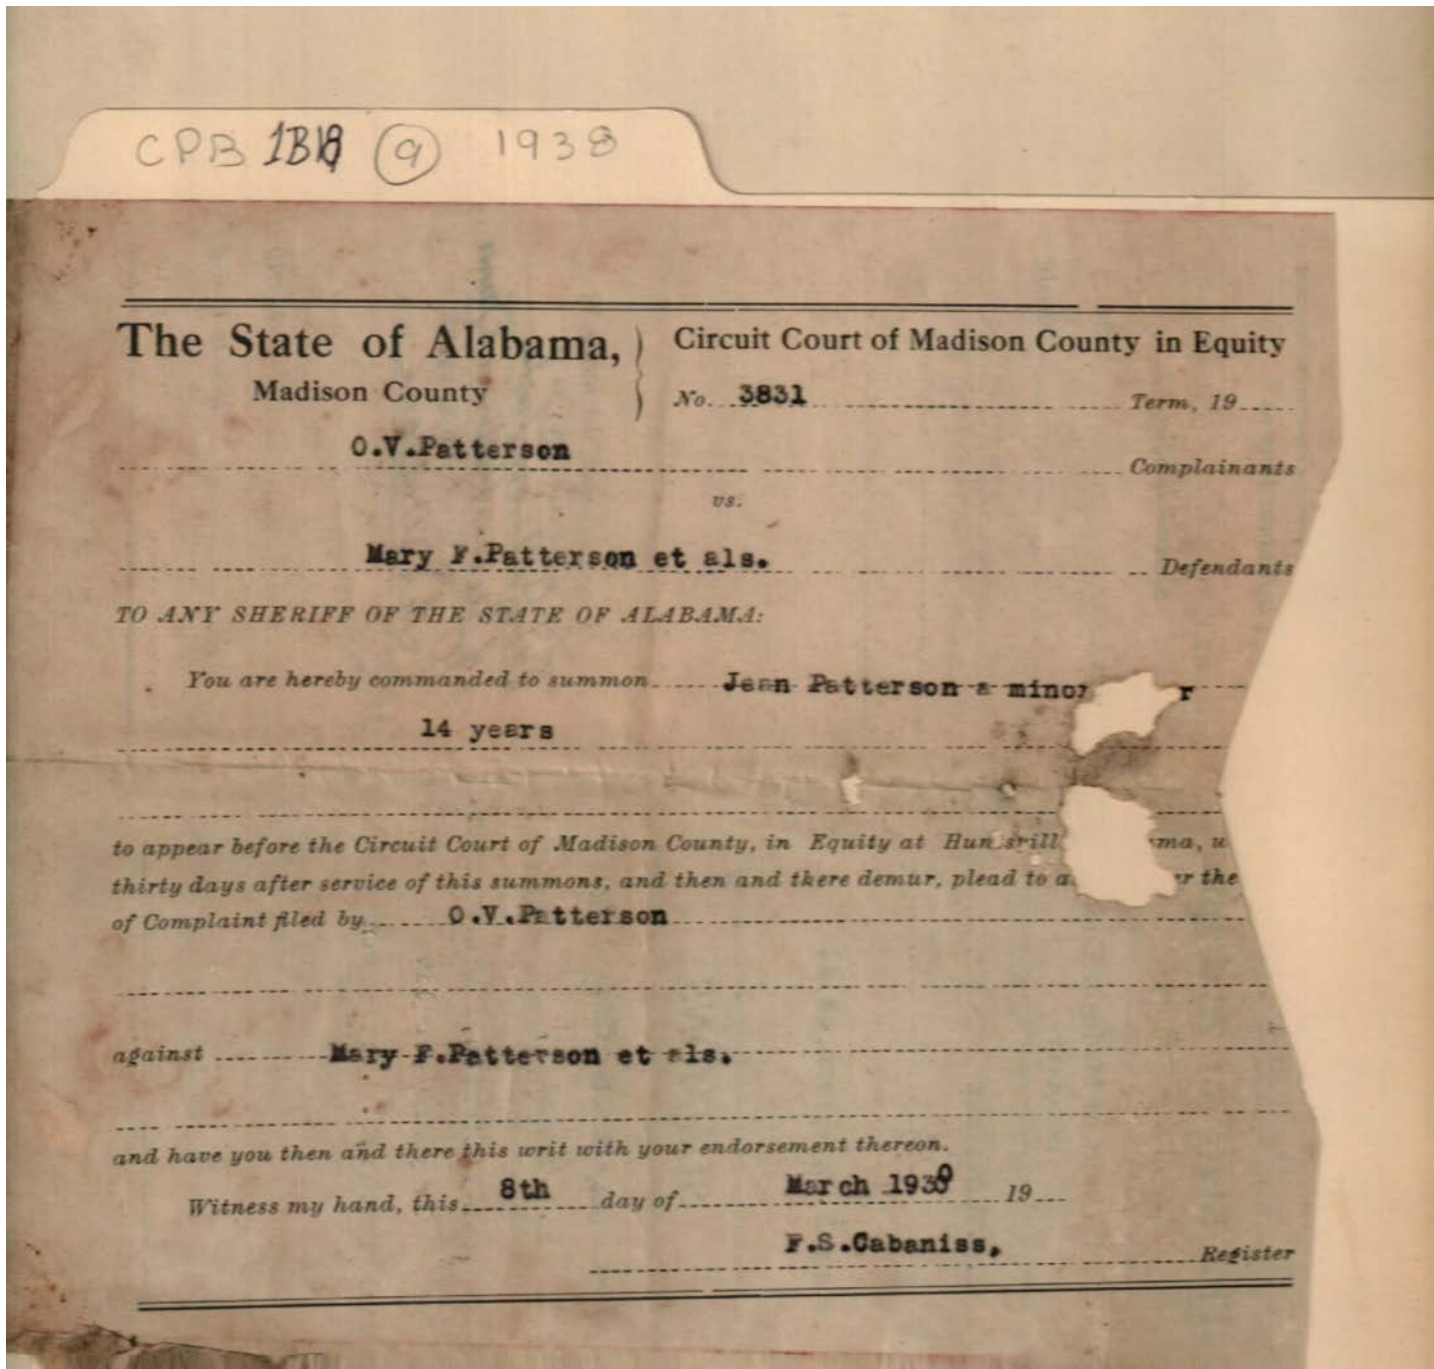 CPB 1B18 9 1938
The State of Alabama, Circuit Court of Madison County in Equity
Madison County No. 3831 Term, 19
O.V.Patterson Complainants
vs.
Mary F.Patterson et als. Defendants
TO ANY SHERIFF OF THE STATE OF ALABAMA:
You are hereby commanded to summon Jean Patterson a minor r
14 years
to appear before the Circuit Court of Madison County, in Equity at
thirty days after service of this summons, and then and there demur, plead to the
of Complaint filed by O.V.Patterson
against Mary F.Patterson et als.
and have you then and there this writ with your endorsement thereon.
Witness my hand, this 8th day of March 19 19
F.S.Cabaniss, Register